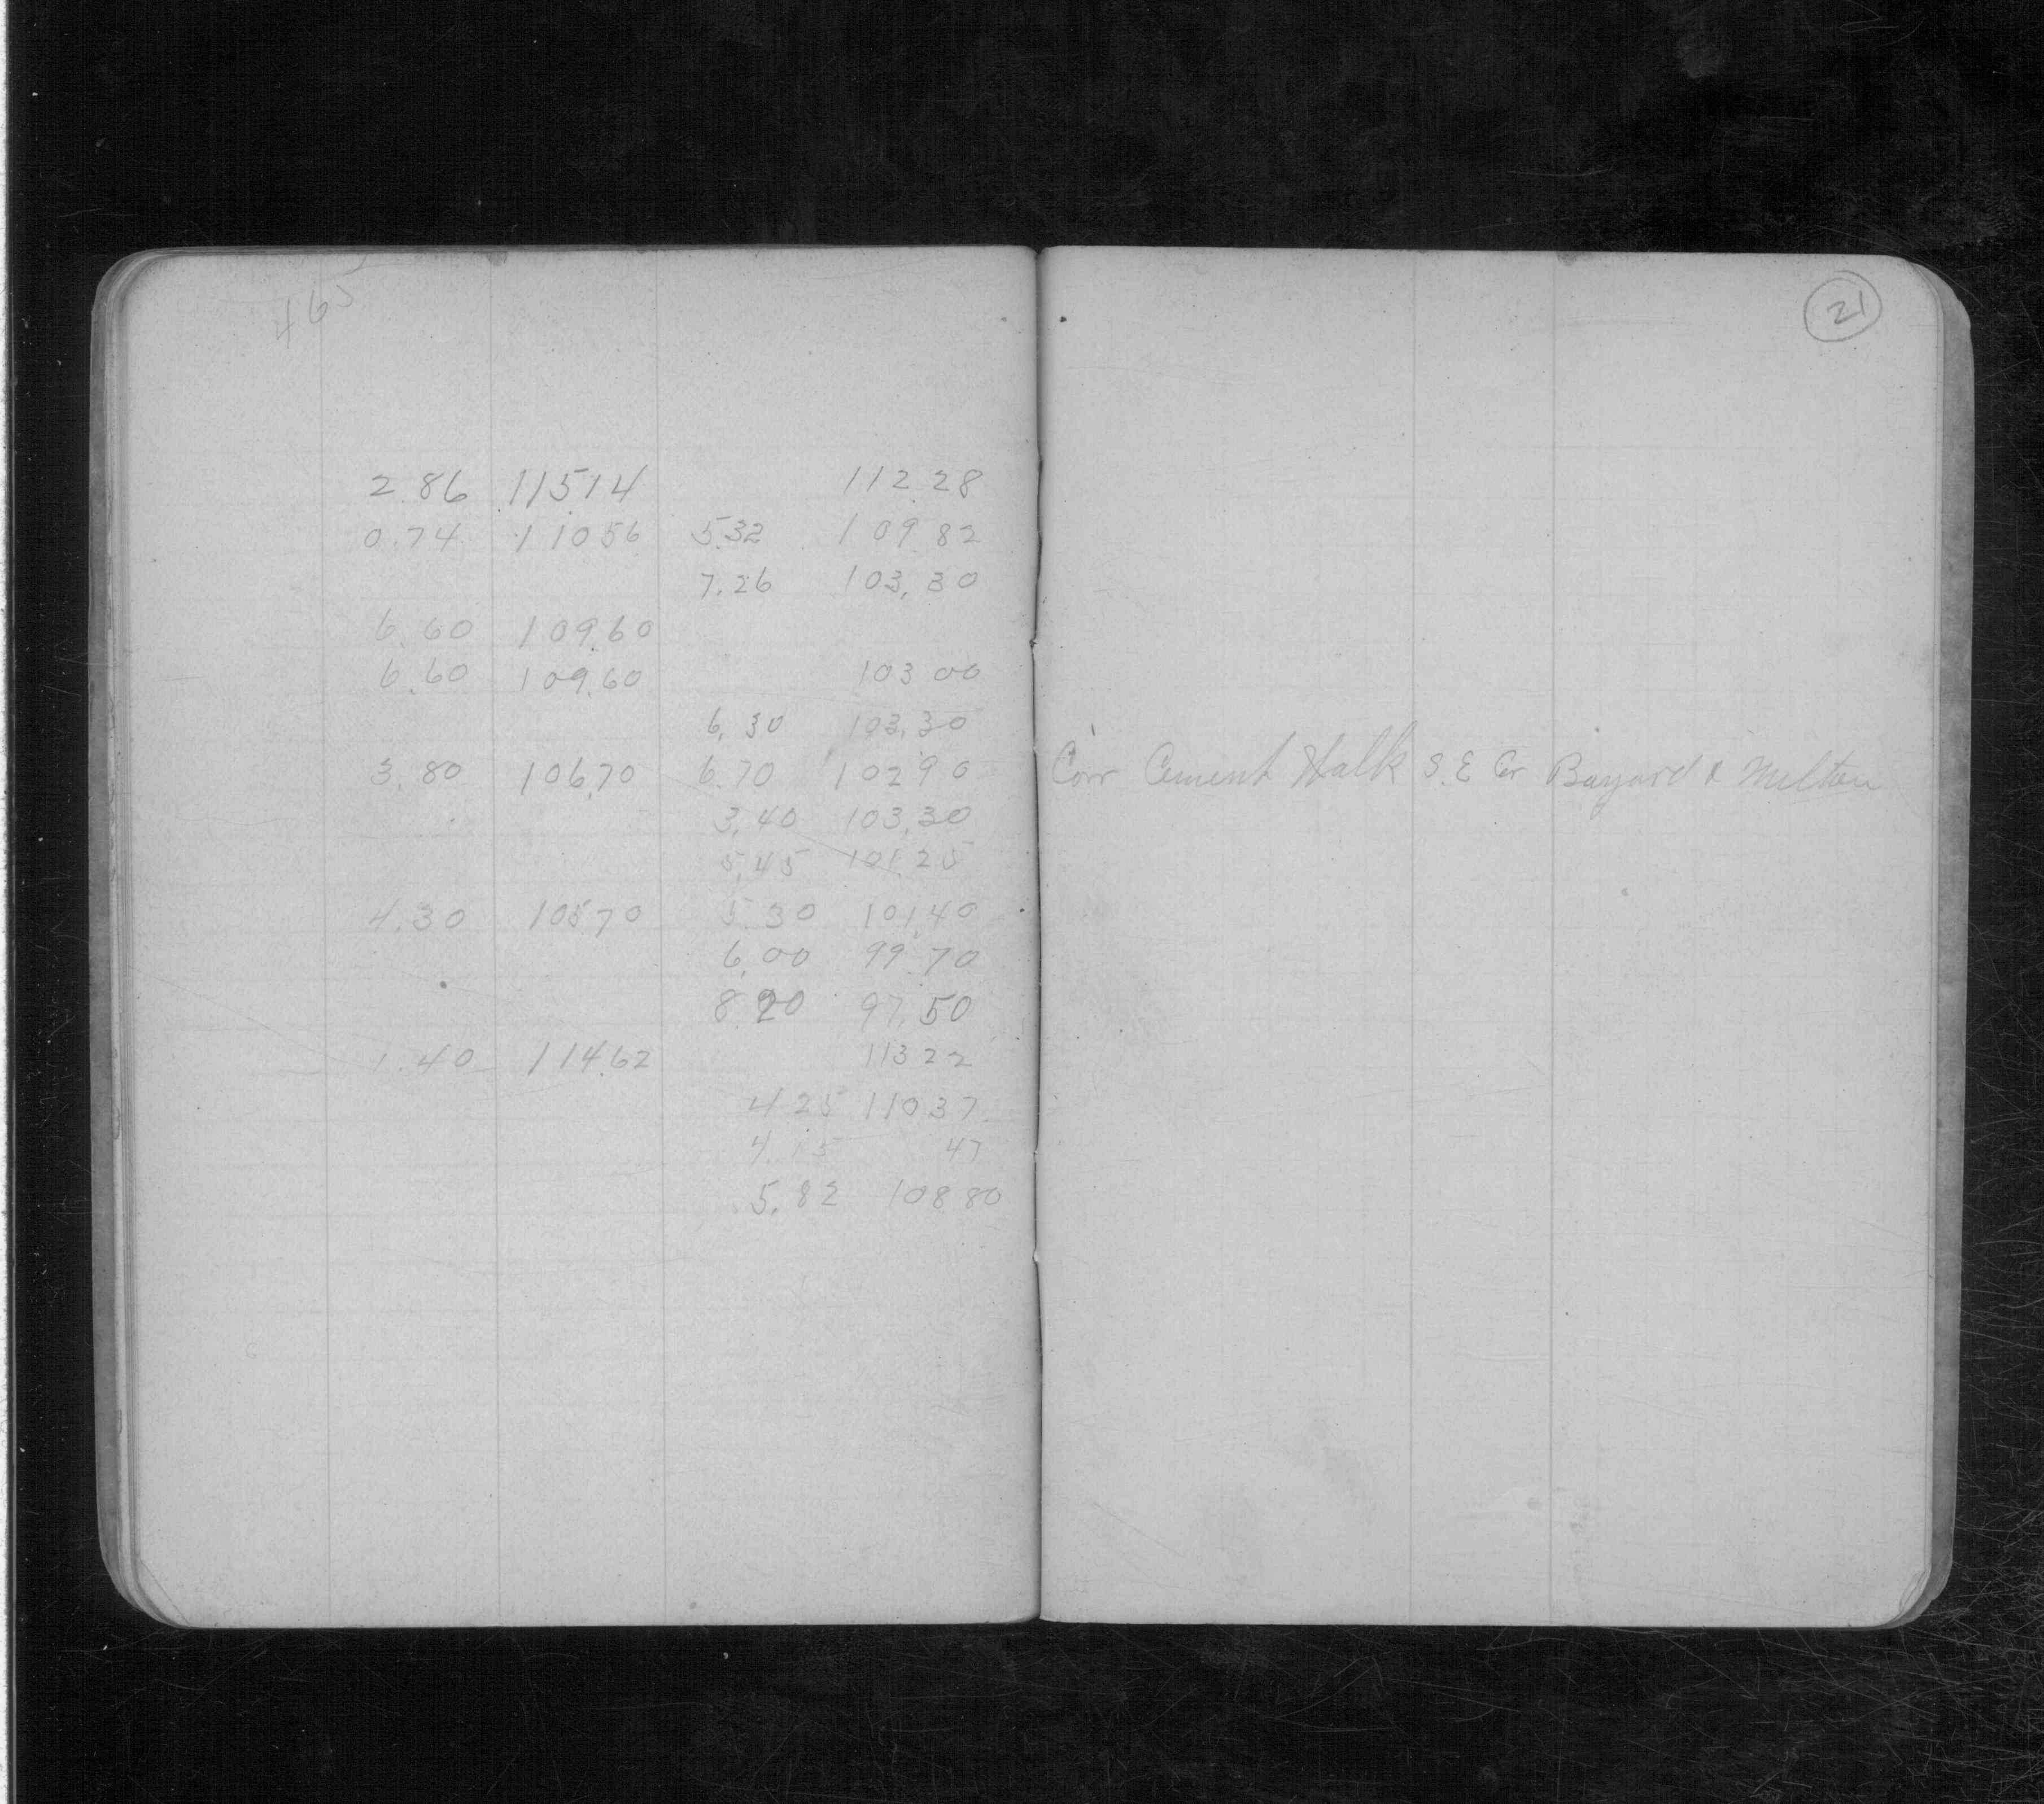 465
21
2.86 115.14 112.28
0.74 110.56 5.32 109.82
7.26 103.30
6.60 109.60
6.60 109.60 103.00
6.30 103.30
3.80 106.70 6.70 102.90 Cor Cement Walk S.E Cr Bayard & Milton
3.40 103.30
5.45 101.25
4.30 105.70 5.30 101.40
6.00 99.70
8.20 97.50
1.40 114.62 113 22
4 25 110 37
4.15 47
5.82 108 80